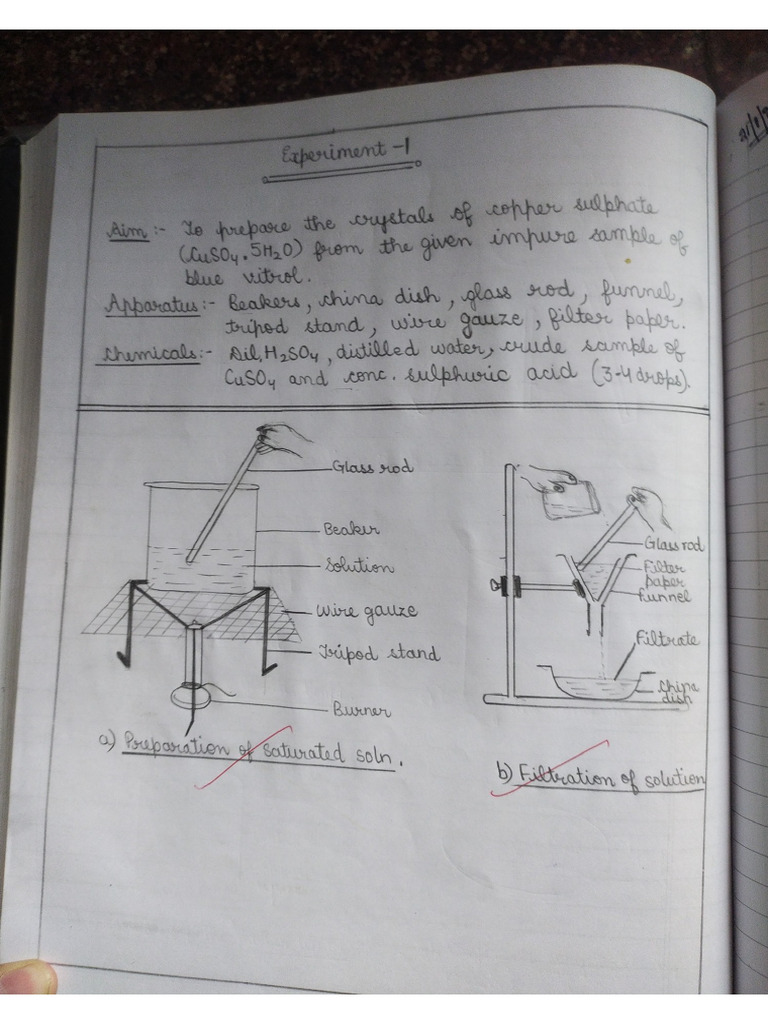 Experiment -1
Aim :- To prepare the crystals of copper sulphate
(CuSO4.5H2O) from the given impure sample of
blue vitrol.
Apparatus:- Beakers, china dish, glass rod, funnel,
tripod stand, wire gauze, filter paper.
Chemicals:- Dil. H2SO4, distilled water, crude sample of
CuSO4 and conc. sulphuric acid (3-4 drops).
Glass rod
Beaker
Solution
Wire gauze
Tripod stand
Burner
a) Preparation of saturated soln.
Glass rod
Filter
paper
funnel
Filtrate
China
dish
b) Filtration of solution